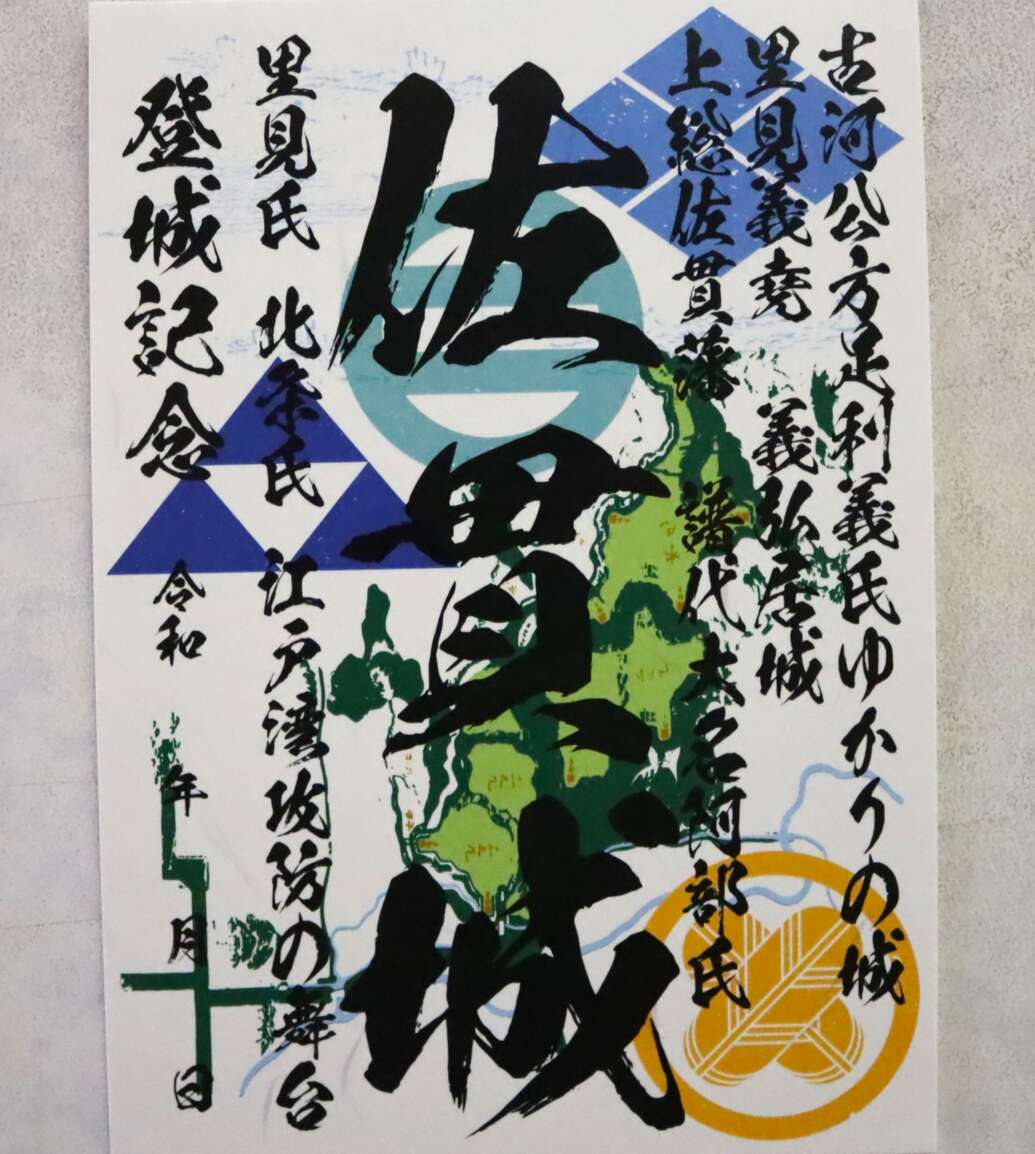 古河公方足利義氏ゆかりの城
里見義堯　義弘居城
上総佐貫藩　譜代大名阿部氏
佐貫城
里見氏　北条氏　江戸湾攻防の舞台
登城記念　令和　年　月　日